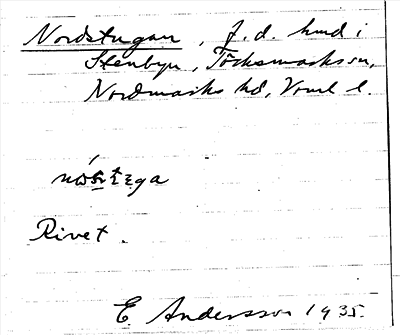 Nordstugan, f.d. hmd i
Stenbyn, Töcksmarks sn,
Nordmarks hd, Vrml l.
Rivet.
E. Andersson 1935.